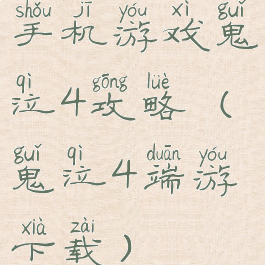 shǒu jī yóu xì guǐ
手机游戏鬼
qì gōng lüè
泣4攻略（
guǐ qì duān yóu
鬼泣4端游
xià zài
下载）